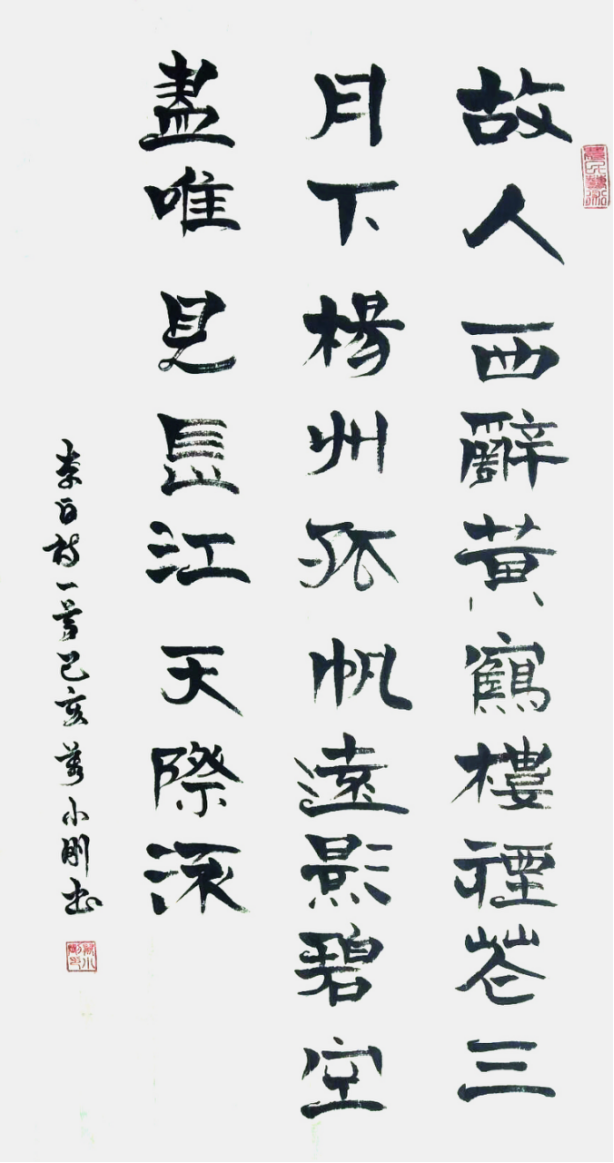 故人西辭黄鶴樓煙花三
月下楊州孤帆遠影碧空
盡唯見長江天際流
李白詩一首己亥萬小刚书